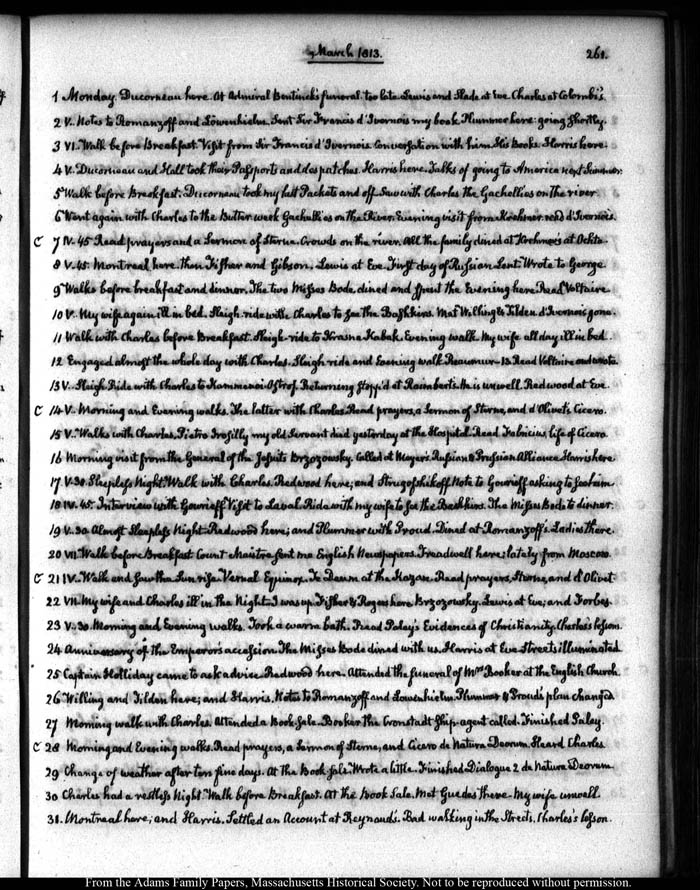 March 1813.
261.
1 Monday. Ducorneau here. At Admiral Bentinck's funeral. too late. Lewis and Slade at Eve. Charles at Colombi's.
2 V. Notes to Romanzoff and Löwenhielm. Sent Sir Francis d'Ivernois my book. Plummer here: going shortly.
3 VI. Walk before Breakfast. Visit from Sir Francis d'Ivernois. Conversation with him. His Books. Harris here.
4 V. Ducorneau and Hall took their Passports and despatches. Harris here. Talks of going to America next Summer.
5 Walk before Breakfast. Ducorneau took my last Packets and off. Saw with Charles the Gachellies on the river.
6 Went again with Charles to the Butter week Gachellies on the River. Evening visit from Krehmer. read d'Ivernois.
C 7 IV. 45. Read prayers and a Sermon of Sterne. Crowds on the river. All the family dined at Krehmer's at Ochta.
8 V. 45. Montreal here. then Fisher and Gibson. Lewis at Eve. First day of Russian Lent. Wrote to George.
9 Walks before breakfast and dinner. The two Misses Bode, dined and spent the Evening here. Read Voltaire.
10 V. My wife again ill in bed. Sleigh ride with Charles to see the Bashkirs. Met Willing & Tilden. d'Ivernois gone.
11 Walk with Charles before Breakfast. Sleigh-ride to Krasna Kabak. Evening walk. My wife all day ill in bed.
12 Engaged almost the whole day with Charles. Sleigh ride and Evening walk. Reaumur - 13. Read Voltaire and wrote.
13 V. Sleigh Ride with Charles to Kammenoi-Ostrof. Returning stopp'd at Raimbert's. He is unwell. Redwood at Eve.
C 14 V. Morning and Evening walks. The latter with Charles. Read prayers, a Sermon of Sterne, and d'Olivet's Cicero.
15 V. Walks with Charles. Pietro my old Servant died yesterday at the Hospital. Read Fabricius, life of Cicero.
16 Morning visit from the General of the Jesuits Brzozowsky. Called at Meyer's. Russian & Prussian Alliance. Harris here
17. V. 30. Sleepless Night. Walk with Charles. Redwood here; and Strugofshikoff. Note to Gourieff asking to see him
18 IV. 45. Interview with Gourieff. Visit to Laval. Ride with my wife to see the Bashkirs. The Misses Bode to dinner.
19 V. 30. Almost Sleepless Night. Redwood here; and Plummer with Proud. Dined at Romanzoff's. Ladies there.
20 VII. Walk before Breakfast. Count Maistre sent me English Newspapers. Treadwell here; lately from Moscow.
C 21 IV. Walk and saw the Sun rise. Vernal Equinox. Te Deum at the Kazan. Read prayers, Sterne, and d'Olivet
22 VII. My wife and Charles ill in the Night. I was up. Fisher & Rogers here. Brzozowsky. Lewis at Eve; and Forbes.
23 V. 30. Morning and Evening walks. Took a warm bath. Read Paley's Evidences of Christianity. Charles's lesson.
24 Anniversary of the Emperor's accession. The Misses Bode dined with us. Harris at Eve. Streets illuminated
25 Captain Holliday came to ask advice. Redwood here. Attended the funeral of Mrs. Booker at the English Church.
26 Willing and Tilden here; and Harris. Notes to Romanzoff and Löwenhielm. Plummer & Proud's plan changed
27 Morning walk with Charles. Attended a Book Sale. Booker the Cronstadt Ship-agent called. Finished Paley.
C 28 Morning and Evening walks. Read prayers, a Sermon of Sterne, and Cicero de Natura Deorum. Heard Charles
29 Change of weather after ten fine days. At the Book Sale. Wrote a little. Finished Dialogue 2 de Natura Deorum
30 Charles had a restless Night. Walk before Breakfast. At the Book Sale. Met Guedes there. My wife unwell.
31. Montreal here; and Harris. Settled an Account at Reynaud's. Bad walking in the Streets. Charles's lesson.
From the Adams Family Papers, Massachusetts Historical Society. Not to be reproduced without permission.